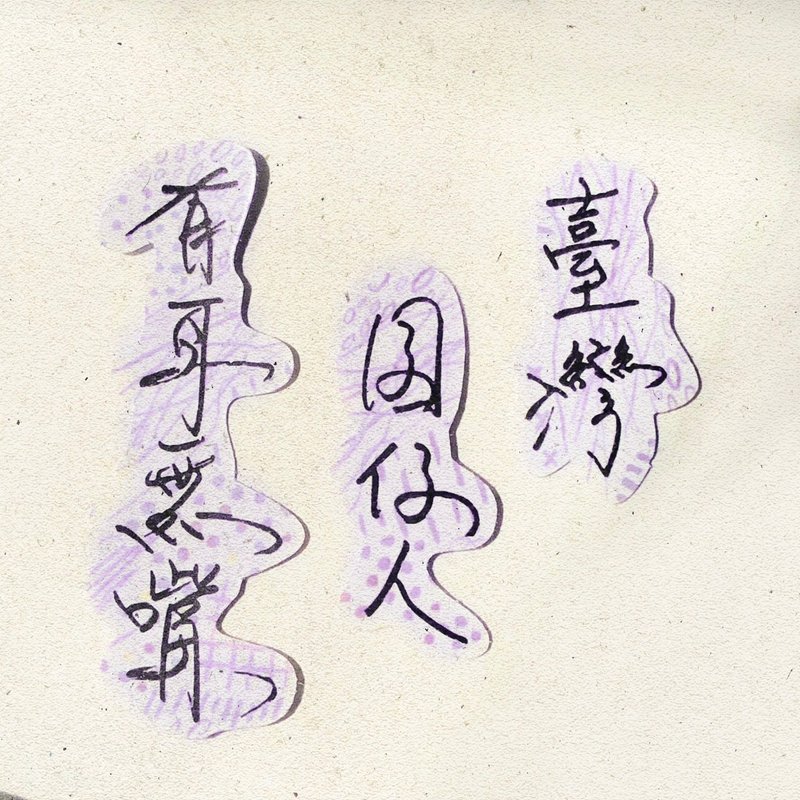 臺灣
囡仔人
有耳無嘴